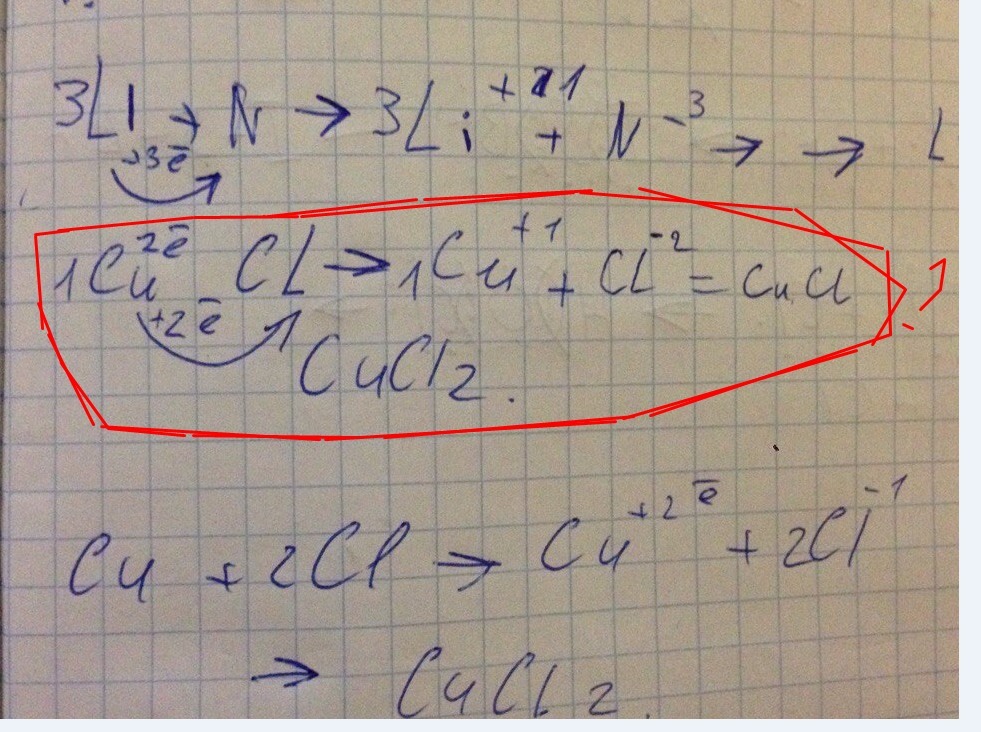 3Li → N → 3Li⁺¹ + N⁻³ → → L
+3ē
1Cu 2ē CL → 1Cu⁺¹ + CL⁻² = CuCl ?
+2ē
CuCl₂.
Cu + 2Cl → Cu⁺²ē + 2Cl⁻¹
→ CuCl₂.